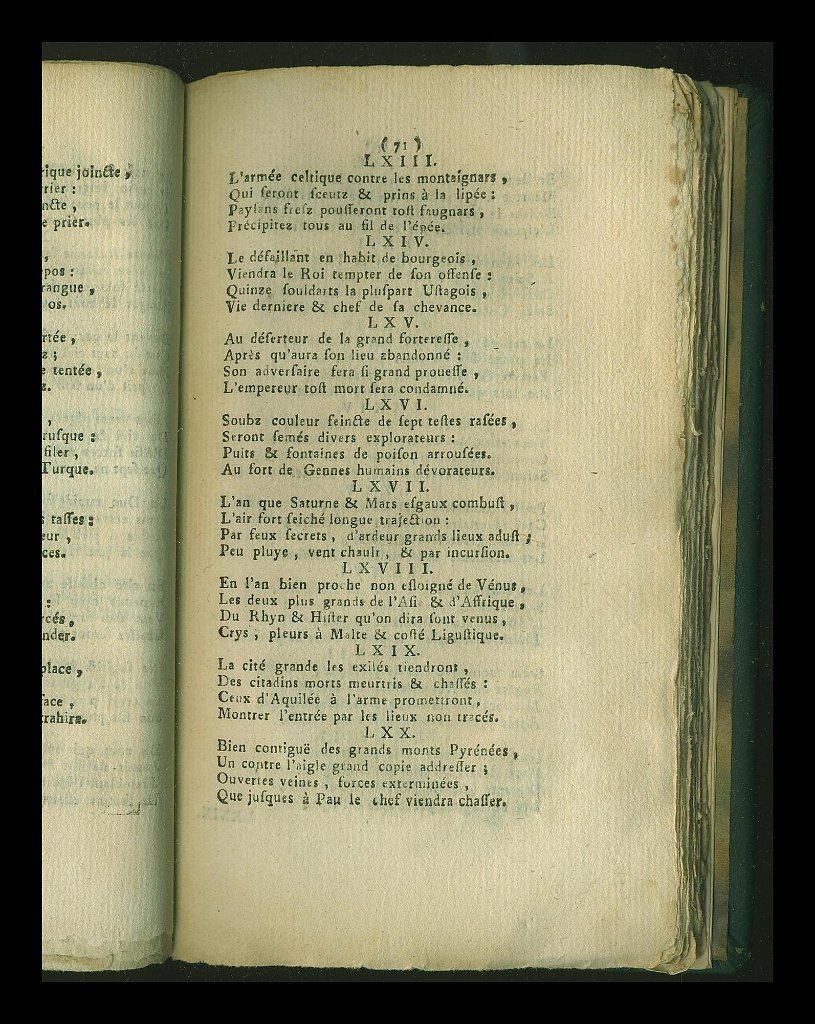 rique joincte,
rier :
ncte,
e prier.
,
pos :
rangue,
os.
rtée,
z ;
e tentée,
z.
,
rusque :
filer,
Turque.
s tasses :
eur,
ces.
:
rcés,
nder.
place,
face,
trahira.
( 71 )
LXIII.
L'armée celtique contre les montaignars,
Qui ſeront ſceutz & prins à la lipée :
Payſans freſz pouſſeront toſt faugnars,
Précipitez tous au fil de l'épée.
LXIV.
Le défaillant en habit de bourgeois,
Viendra le Roi tempter de ſon offenſe :
Quinze ſouldarts la pluſpart Uſtagois,
Vie derniere & chef de ſa chevance.
LXV.
Au déſerteur de la grand fortereſſe,
Après qu'aura ſon lieu abandonné :
Son adverſaire fera ſi grand proueſſe,
L'empereur toſt mort ſera condamné.
LXVI.
Soubz couleur feincte de ſept teſtes raſées,
Seront ſemés divers explorateurs :
Puits & fontaines de poiſon arrouſées.
Au fort de Gennes humains dévorateurs.
LXVII.
L'an que Saturne & Mars eſgaux combuſt,
L'air fort ſeiché longue trajection :
Par feux ſecrets, d'ardeur grands lieux aduſt ;
Peu pluye, vent chault, & par incurſion.
LXVIII.
En l'an bien proche non eſloigné de Vénus,
Les deux plus grands de l'Aſie & d'Affrique,
Du Rhyn & Hiſter qu'on dira ſont venus,
Crys, pleurs à Malte & coſté Liguſtique.
LXIX.
La cité grande les exilés tiendront,
Des citadins morts meurtris & chaſſés :
Ceux d'Aquilée à l'arme promettront,
Montrer l'entrée par les lieux non tracés.
LXX.
Bien contiguë des grands monts Pyrénées,
Un contre l'aigle grand copie addreſſer ;
Ouvertes veines, forces exterminées,
Que juſques à Pau le chef viendra chaſſer.